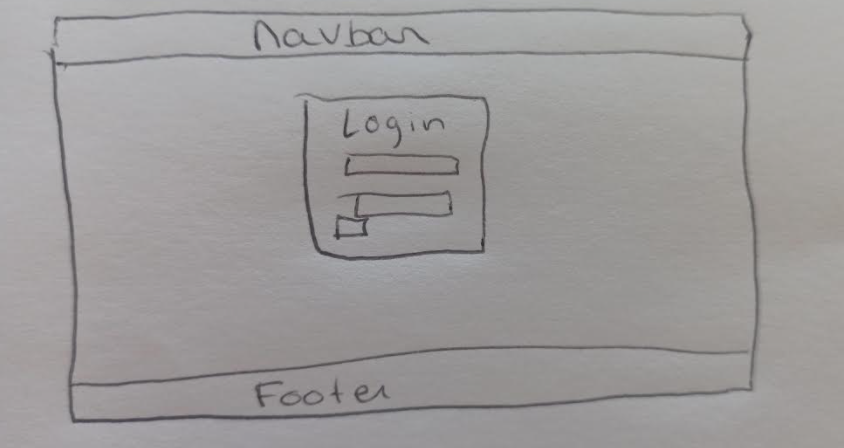 Navbar
Login
Footer